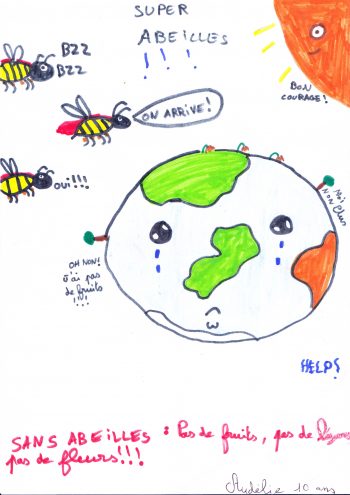 SUPER
ABEILLES
! ! !
BZZ
BZZ
ON ARRIVE!
BON
COURAGE!
OUI!!!
Moi
Non plus
OH NON!
J'ai pas
de fruits
!!!
HELP!
SANS ABEILLES : Pas de fruits, pas de légumes
pas de fleurs!!!
Audelie 10 ans